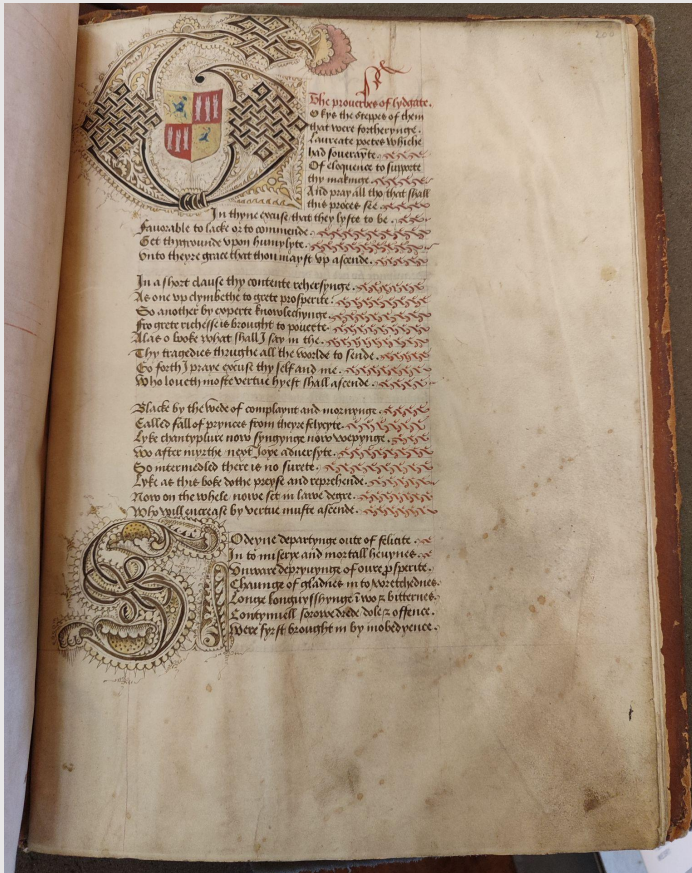 200
The prouerbes of lydgate.
O kys the steppes of them
that were fortherynge.
Laureate poetes whiche
had souerayte.
Of eloquence to supporte
thy makinge.
And pray all tho that shall
this proces see.
In thyne excuse that they lyste to be.
Fauorable to lacke or to commende.
Set thy grounde vpon humylyte.
Vnto theyre grace that thou mayst vp ascende.
In a short clause thy contente rehersynge.
As one vp clymbethe to grete prosperite.
So another by experte knowlechynge.
Fro grete richesse is brought to pouerte.
Alas o booke what shall I say in the.
Thy tragedies thrughe all the worlde to sende.
Go forth I praye excuse thy self and me.
Who loueth moste vertue hyest shall ascende.
Blacke by the wede of complaynt and mornynge.
Called fall of prynces from theyre felycyte.
Lyke chantyplure now syngynge now wepynge.
Wo after myrthe next Joye aduersyte.
So intermedled there is no surete.
Lyke as this boke dothe preyse and reprehende.
Now on the whele nowe set in lawe degre.
Who will encrease by vertue muste ascende.
Sodeyne departynge oute of felicite.
In to miserye and mortall heuynes.
Vnware depryuynge of oure prosperite.
Chaunge of gladnes in to wretchednes.
Longe longuysshynge i wo & bitternes.
Contynuell sorowe drede dole & offence.
Were fyrst brought in by inobedyence.